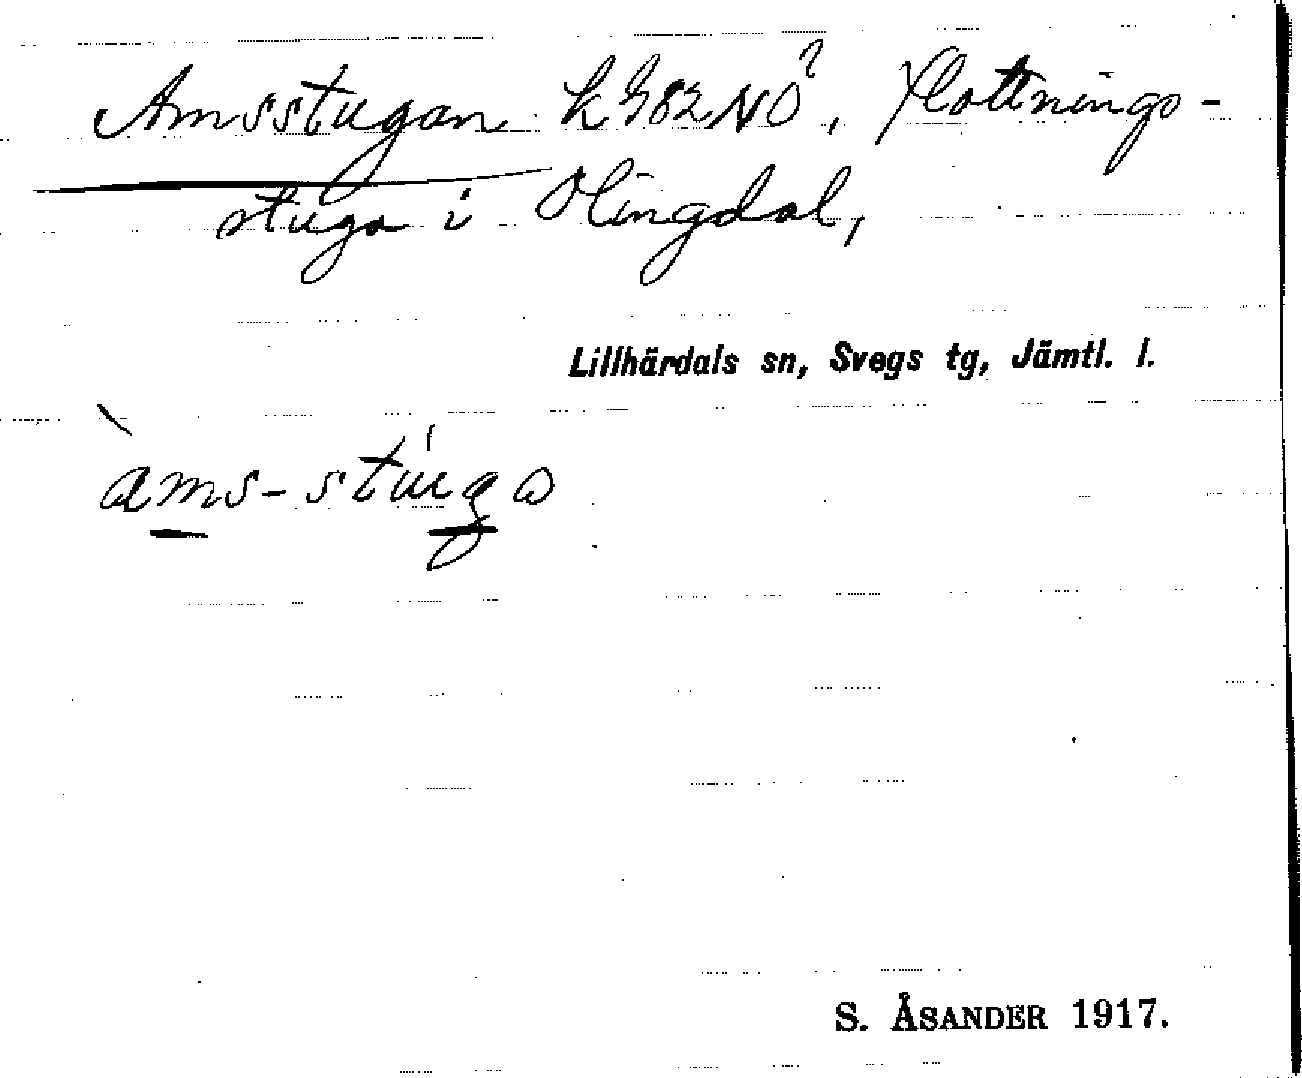 Amsstugan k 982 NO?, flottnings-
stuga i Olingdal,
Lillhärdals sn, Svegs tg, Jämtl. l.
àms-stúga
S. ÅSANDER 1917.